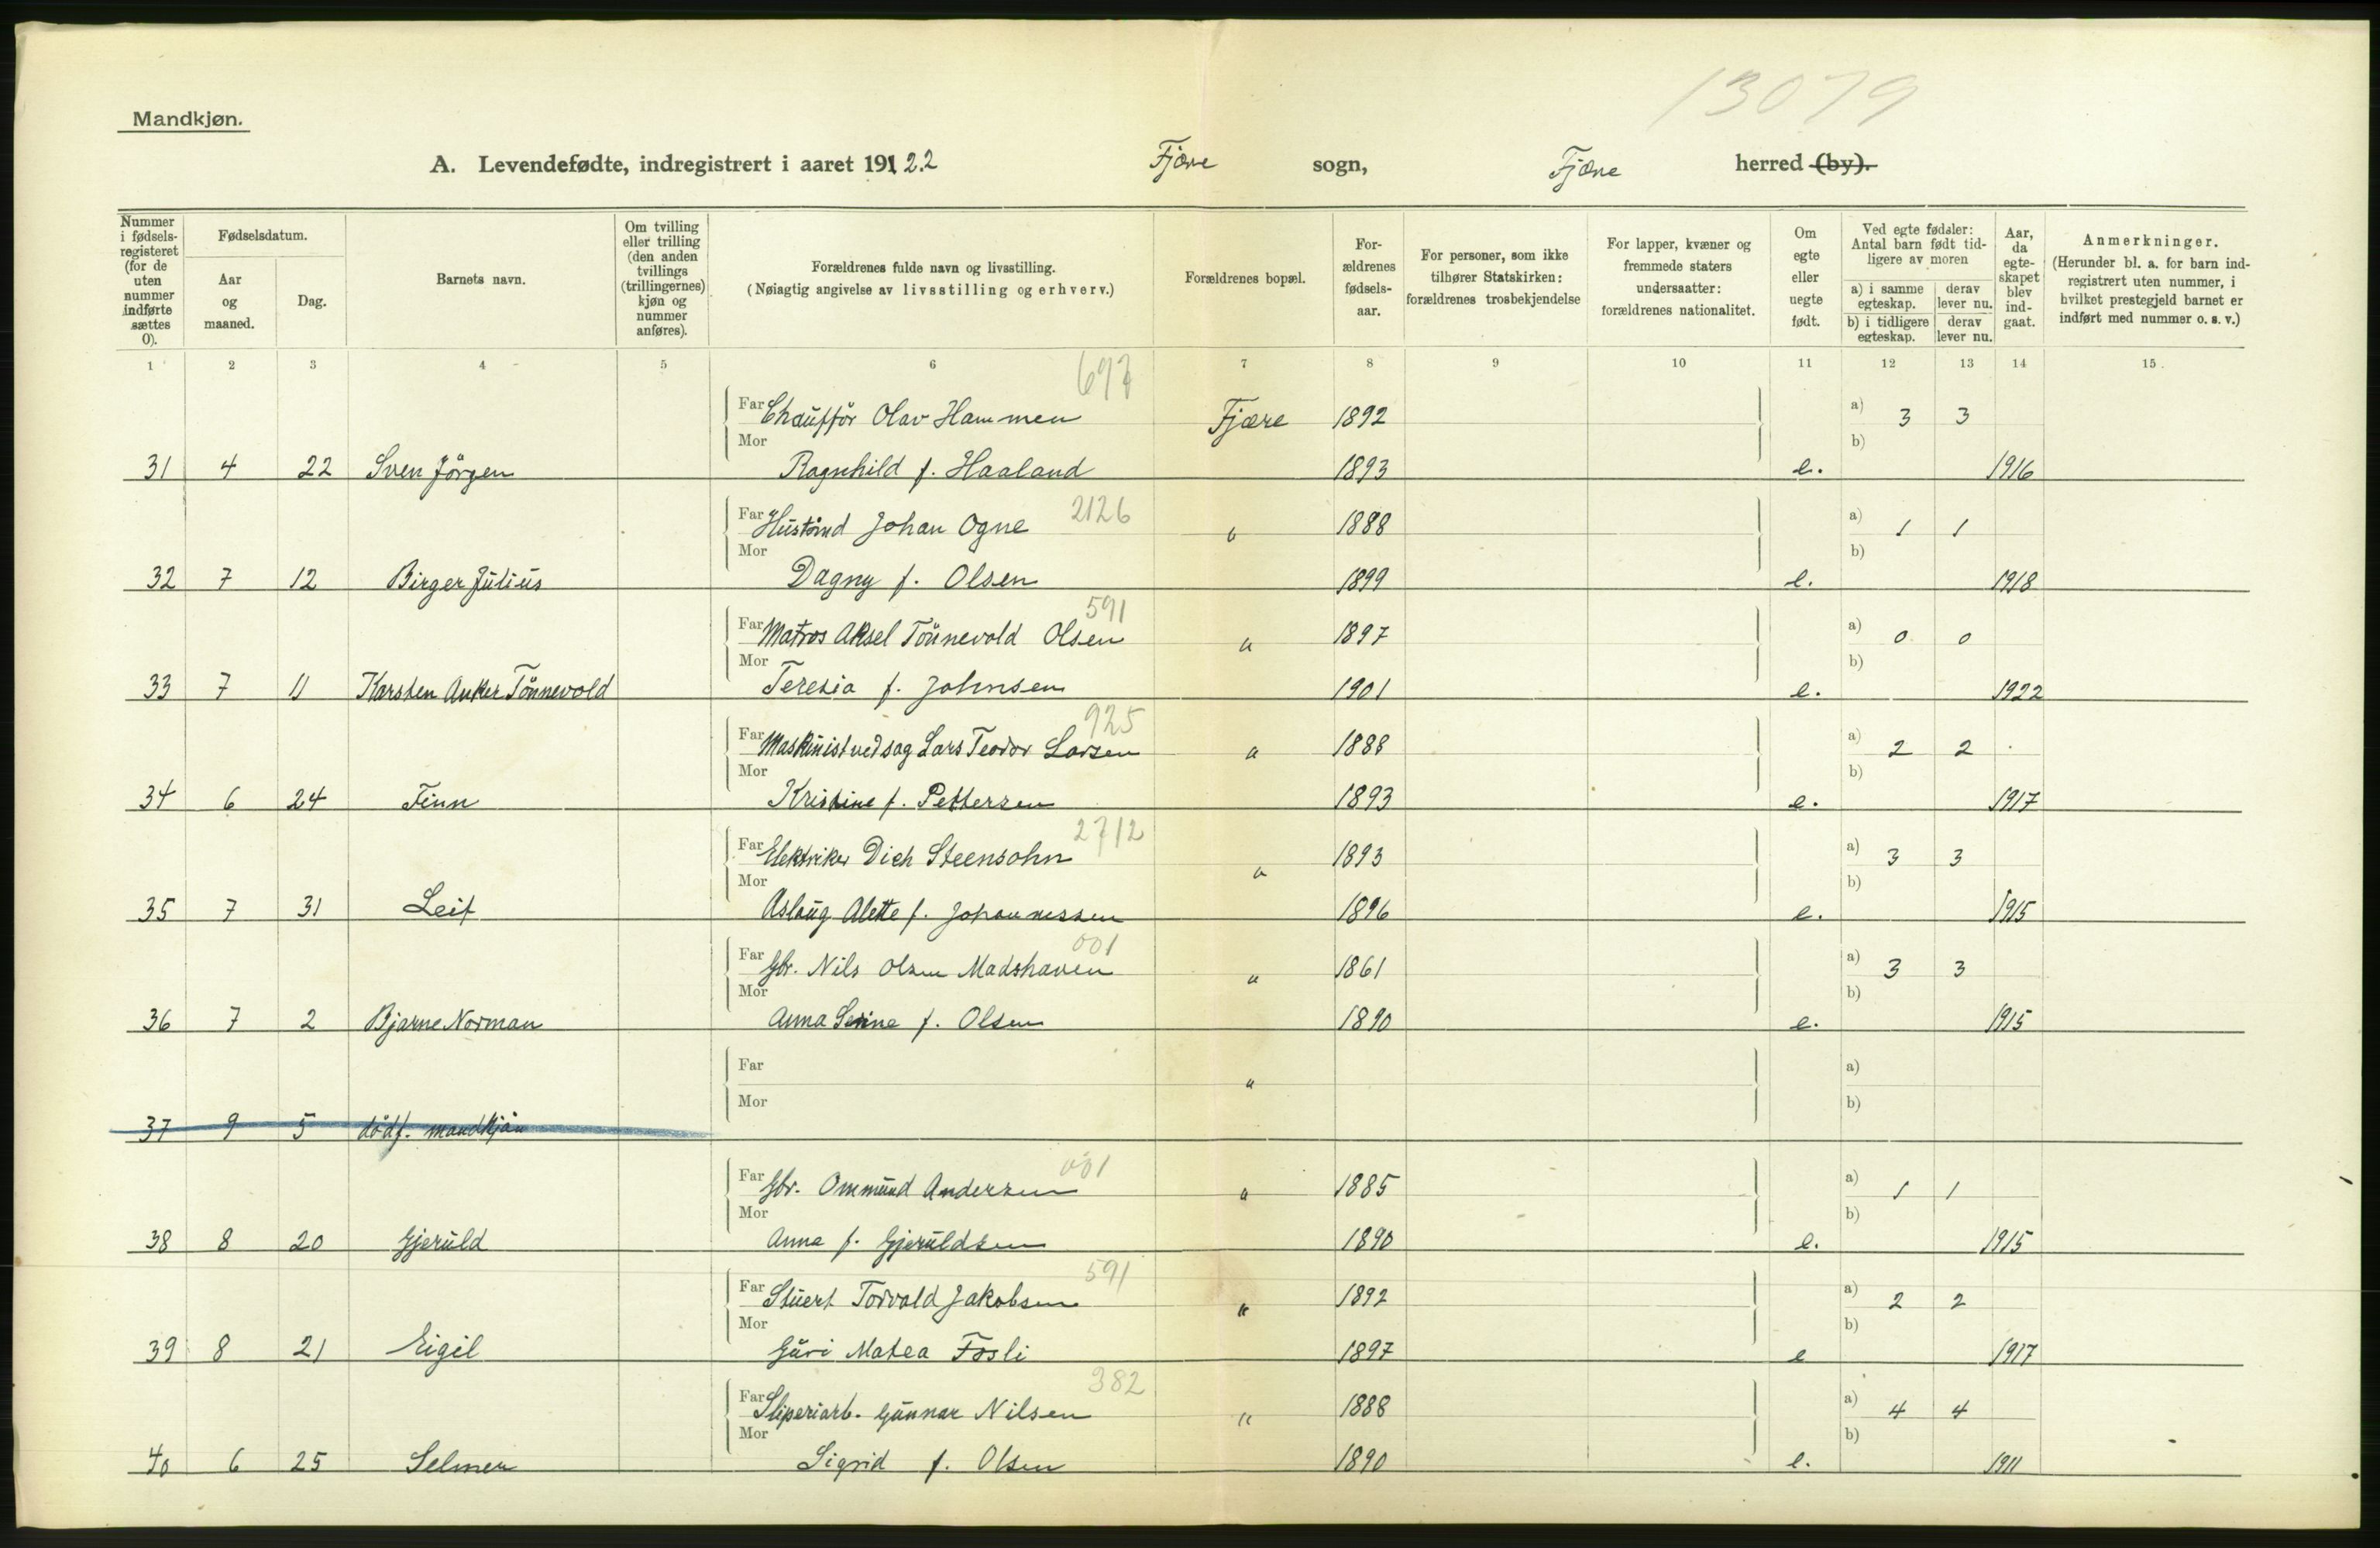 13079
Mandkjøn.
A. Levendefødte, indregistrert i aaret 1922. Fjære sogn, Fjære herred (by).
Nummer i fødsels-registeret (for de uten nummer indførte sættes 0).
Fødselsdatum.
Aar og maaned.
Dag.
Barnets navn.
Om tvilling eller trilling (den anden tvillings (trillingernes) kjøn og nummer anføres).
Forældrenes fulde navn og livsstilling.
(Nøiagtig angivelse av livsstilling og erhverv.)
Forældrenes bopæl.
For-ældrenes fødsels-aar.
For personer, som ikke tilhører Statskirken: forældrenes trosbekjendelse
For lapper, kvæner og fremmede staters undersaatter: forældrenes nationalitet.
Om egte eller uegte født.
Ved egte fødsler: Antal barn født tid-ligere av moren
a) i samme egteskap. derav lever nu.
b) i tidligere egteskap. derav lever nu.
Aar, da egte-skapet blev ind-gaat.
Anmerkninger.
(Herunder bl. a. for barn ind-registrert uten nummer, i hvilket prestegjeld barnet er indført med nummer o. s. v.)
1 2 3 4 5 6 7 8 9 10 11 12 13 14 15.
697
Far Chaufför Olav Hammen Fjære 1892 a) 3 3
Mor b)
31 4 22 Sven Jörgen Ragnhild f. Haaland 1893 e. 1916
Far Hustömd Johan Ogne 2126 " 1888 a) 1 1
Mor b)
32 7 12 Birger Julius Dagny f. Olsen 1899 e. 1918
591
Far Matros Aksel Tönnevold Olsen " 1897 a) 0 0
Mor b)
33 7 11 Karsten Anker Tönnevold Teresia f. Johnsen 1901 e. 1922
925
Far Maskinist ved sag Lars Teodor Larsen " 1888 a) 2 2
Mor b)
34 6 24 Finn Kristine f. Pettersen 1893 e. 1917
2712
Far Elektriker Dich Steensohn " 1893 a) 3 3
Mor b)
35 7 31 Leif Aslaug Alette f. Johannessen 1896 e. 1915
001
Far Gbr. Nils Olsen Madshaven " 1861 a) 3 3
Mor b)
36 7 2 Bjarne Norman Anna Serine f. Olsen 1890 e. 1915
Far " a)
Mor b)
37 9 5 dödf. mandkjön
001
Far Gbr. Ommund Andersen " 1885 a) 1 1
Mor b)
38 8 20 Gjeruld Anna f. Gjeruldsen 1890 e. 1915
591
Far Stuert Torvald Jakobsen " 1892 a) 2 2
Mor b)
39 8 21 Eigil Guri Matea Fosli 1897 e 1917
382
Far Sliperiarb. Gunnar Nilsen " 1888 a) 4 4
Mor b)
40 6 25 Selmer Sigrid f. Olsen 1890 e. 1911